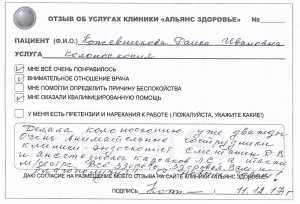 ОТЗЫВ ОБ УСЛУГАХ КЛИНИКИ «АЛЬЯНС ЗДОРОВЬЕ» №
ПАЦИЕНТ (Ф.И.О.) Раиса Ивановна
УСЛУГА Колоноскопия
МНЕ ВСЁ ОЧЕНЬ ПОНРАВИЛОСЬ
ВНИМАТЕЛЬНОЕ ОТНОШЕНИЕ ВРАЧА
МНЕ ПОМОГЛИ ОПРЕДЕЛИТЬ ПРИЧИНУ БЕСПОКОЙСТВА
МНЕ ОКАЗАЛИ КВАЛИФИЦИРОВАННУЮ ПОМОЩЬ
У МЕНЯ ЕСТЬ ПРЕТЕНЗИИ И НАРЕКАНИЯ К РАБОТЕ ( ПОЖАЛУЙСТА, УКАЖИТЕ КАКИЕ!)
Делала колоноскопию уже дважды
Очень внимательные сотрудники
клиники - эндоскопист Сметанин Д.В
и анестезиолог Казаков Л.С. а также
м/сестра. Все здорово. Здоровья Вам и
ДАЮ СОГЛАСИЕ НА РАЗМЕЩЕНИЕ МОЕГО ОТЗЫВА НА САЙТЕ КЛИНИКИ АЛЬЯНС ЗДОРОВЬЕ
ПОДПИСЬ 11.12.17 г